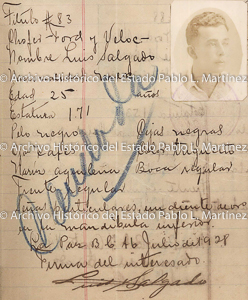 Título #83
Chofer Ford y Veloc-
Nombre Luis Salgado
Edad 25 años
Estatura 171
Pelo negro Cejas negras
Nariz aguileña Boca regular
Frente regular
Señas particulares, un diente de oro
en la mandíbula inferior.
La Paz B.C. 16 Julio de 1928
Firma del interesado.
Luis Salgado
© Archivo Historico del Estado Pablo L. Martínez
© Archivo Historico del Estado Pablo L. Martínez
© Archivo Historico del Estado Pablo L. Martínez
© Archivo Historico del Estado Pablo L. Martínez